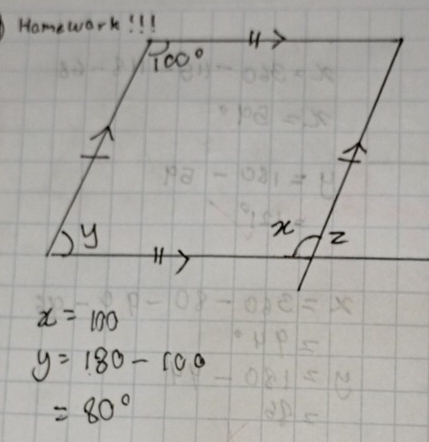 Homework!!!
100°
y
x z
x = 100
y = 180 - 100
= 80°